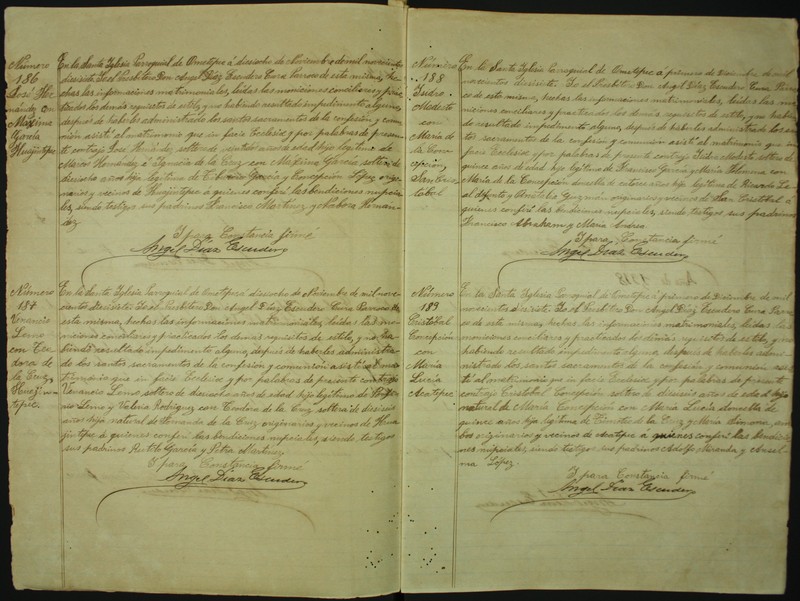 Número
186
José Her
nández con
Máxima
García
Huajintepec
En la Santa Iglesia Parroquial de Ometepec á dieciocho de Noviembre de mil novecientos
diecisiete. Yo el Presbítero Don Angel Díaz Escudero Cura Párroco de este mismo, he
chas las informaciones matrimoniales, leidas las moniciones conciliares y prac
ticados los demas requisitos de estilo, y no habiendo resultado impedimento alguno,
después de haberles administrado los santos sacramentos de la confesión y comu
nión asistí al matrimonio que in facie Ecclesie y por palabras de presen
te contrajo José Hernández soltero de años de edad hijo legítimo de
Marcos Hernández é Ignacia de la Cruz con Máxima García, soltera de
dieciocho años hija legítima de García y Concepción López origi
narios y vecinos de Huajintepec á quienes conferí las bendiciones nupcia
les, siendo testigos sus padrinos Francisco Martínez y Hernán
dez.
Y para Constancia firmé
Angel Díaz Escudero
Número
187
Venancio
Lemo
con Teo
dora de
la Cruz
Huajin
tepec
En la Santa Iglesia Parroquial de Ometepec á dieciocho de Noviembre de mil nove
cientos diecisiete. Yo el Presbítero Don Angel Díaz Escudero Cura Párroco de
este mismo, hechas las informaciones matrimoniales, leidas las mo
niciones conciliares y practicados los demás requisitos de estilo, y no ha
biendo resultado impedimento alguno, después de haberles administra
do los santos sacramentos de la confesión y comunión asistí al ma
trimonio que in facie Ecclesie y por palabras de presente contrajo
Venancio Lemo soltero de años de edad hijo legítimo de
Lemo y Valeria Rodríguez con Teodora de la Cruz soltera de dieciseis
años hija natural de Fernanda de la Cruz originarios y vecinos de Hua
jintepec á quienes conferí las bendiciones nupciales, siendo testigos
sus padrinos García y Petra
Y para Constancia firmé
Angel Díaz Escudero
Número
188
Isidro
Modesto
con
María de
la Conce
pción
San Cris
tobal
En la Santa Iglesia Parroquial de Ometepec á primero de Diciembre de mil
novecientos diecisiete. Yo el Presbítero Don Angel Díaz Escudero Cura Párro
co de este mismo, hechas las informaciones matrimoniales, leidas las mo
niciones conciliares y practicados los demás requisitos de estilo, y no habien
do resultado impedimento alguno, después de haberles administrado los san
tos sacramentos de la confesión y comunión asistí al matrimonio que in
facie Ecclesie y por palabras de presente contrajo Isidro Modesto soltero de
quince años de edad hijo legítimo de Francisco García y María Filomena con
María de la Concepción doncella de catorce años hija legítima de Ricardo Le
al difunto y Guzmán originarios y vecinos de San Cristobal á
quienes conferí las bendiciones nupciales, siendo testigos sus padrinos
Francisco Abraham y María Andrea
Y para Constancia firmé
Angel Díaz Escudero
Número
189
Cristóbal
Concepción
con
María
Lucia
Acatepec
En la Santa Iglesia Parroquial de Ometepec á primero de Diciembre de mil
novecientos diecisiete. Yo el Presbítero Don Angel Díaz Escudero Cura Párro
co de este mismo, hechas las informaciones matrimoniales, leidas las
moniciones conciliares y practicados los demás requisitos de estilo, y no
habiendo resultado impedimento alguno, después de haberles admi
nistrado los santos sacramentos de la confesión y comunión asis
tí al matrimonio que in facie Ecclesie y por palabras de presente
contrajo Cristobal Concepción soltero de dieciseis años de edad hijo
natural de María Concepción con María Lucia doncella de
quince años hija legítima de de la Cruz y María Simona, am
bos originarios y vecinos de Acatepec á quienes conferí las bendicio
nes nupciales, siendo testigos sus padrinos Adolfo Miranda y Ansel
ma López.
Y para Constancia firmé
Angel Díaz Escudero